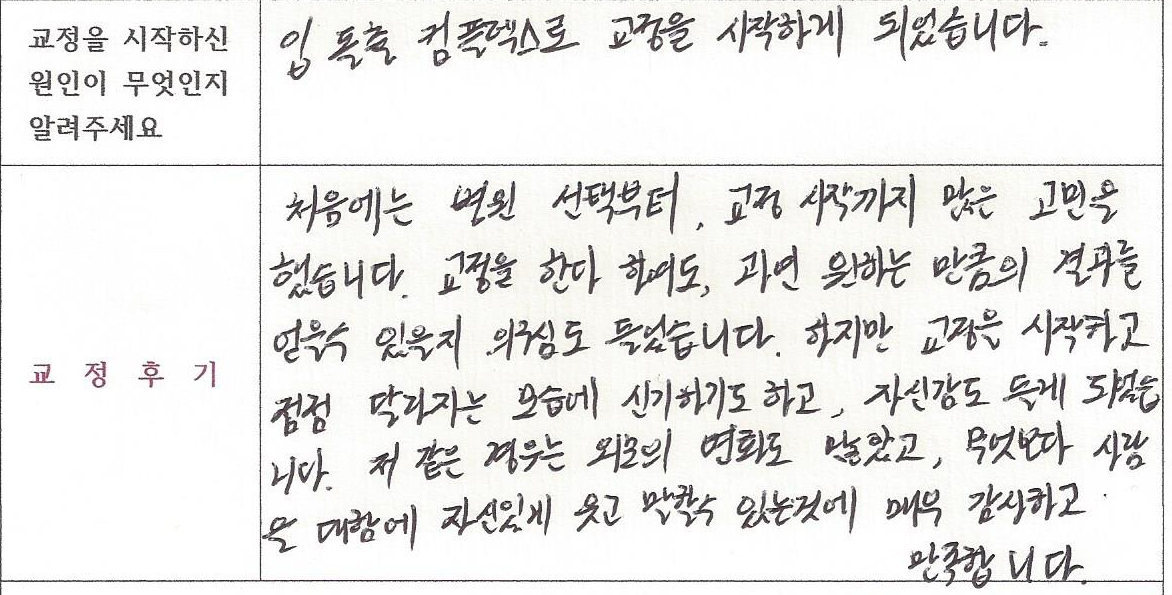 교정을 시작하신
원인이 무엇인지
알려주세요
입 돌출 컴플렉스로 교정을 시작하게 되었습니다.
교 정 후 기
처음에는 병원 선택부터, 교정 시작까지 많은 고민을
했습니다. 교정을 한다 하여도, 과연 원하는 만큼의 결과를
얻을수 있을지 의구심도 들었습니다. 하지만 교정을 시작하고
점점 달라지는 모습에 신기하기도 하고, 자신감도 듣게 되었습
니다. 저 같은 경우는 외모의 변화도 많았고, 무엇보다 사람
을 대함에 자신있게 웃고 말할수 있는것에 매우 감사하고
만족합니다.